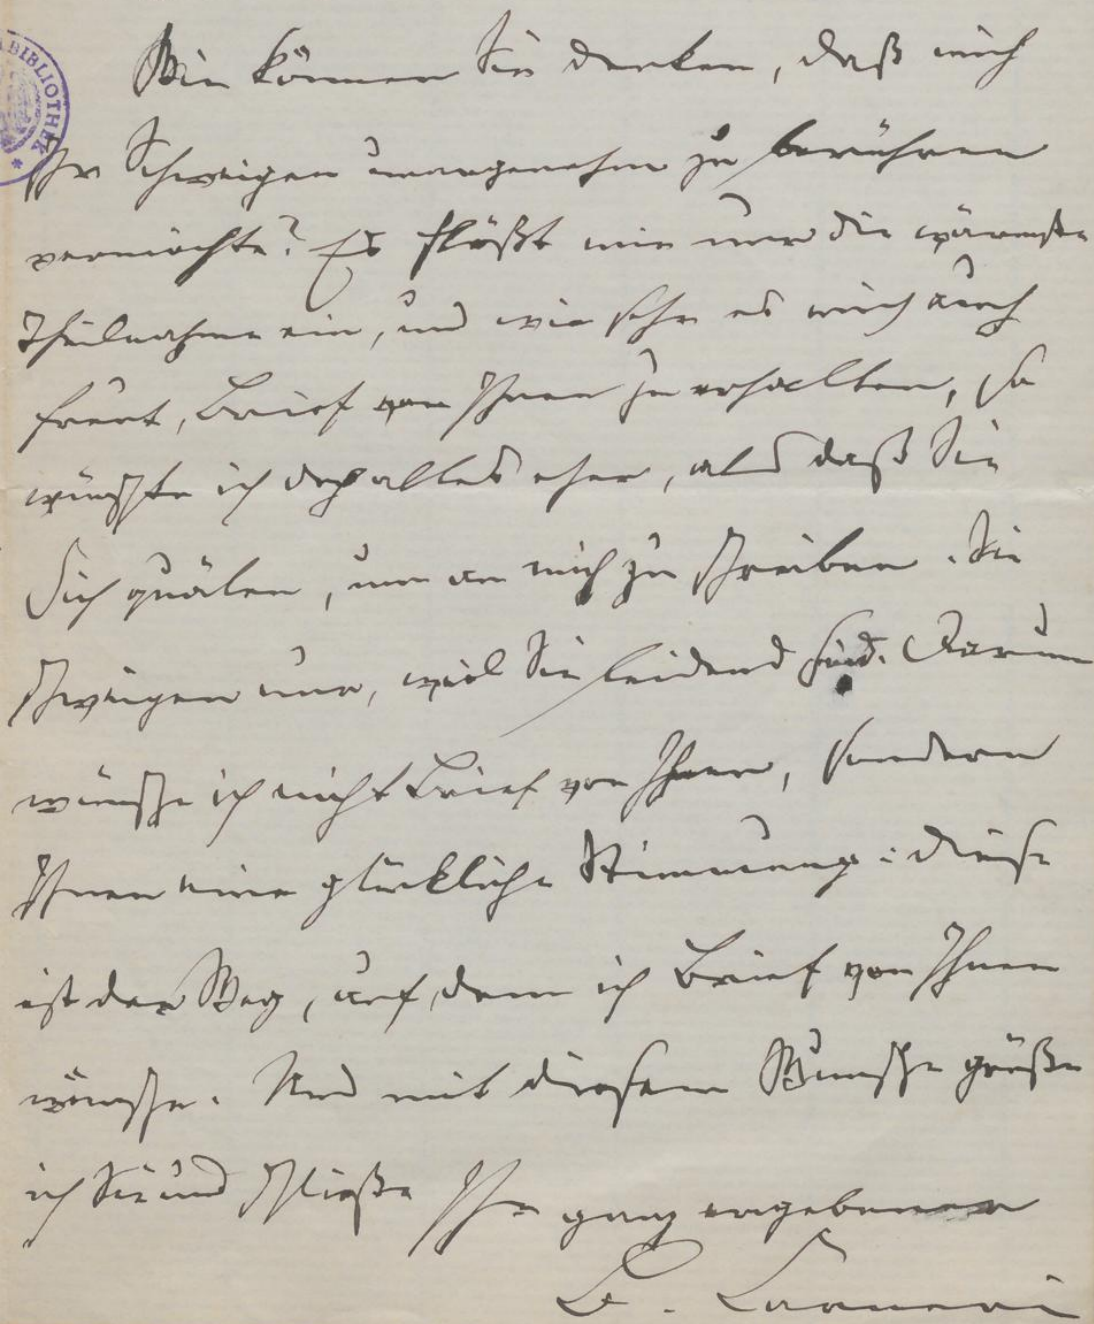 BIBLIOTHEK
Wie können Sie denken, daß mich
Ihr Schweigen unangenehm zu berühren
vermöchte? Es flößt mir nur die wärmste
Theilnahme ein, und wie sehr es mich auch
freut, Brief von Ihnen zu erhalten, so
wünschte ich doch alles eher, als daß Sie
Sich quälen, um an mich zu schreiben. Sie
schweigen nur, weil Sie leidend sind. Darum
wünsche ich nicht Brief von Ihnen, sondern
Ihnen eine glückliche Stimmung: diese
ist der Weg, auf dem ich Brief von Ihnen
wünsche. Und mit diesem Wunsche grüße
ich Sie und schließe Ihr ganz ergebener
B. Carneri